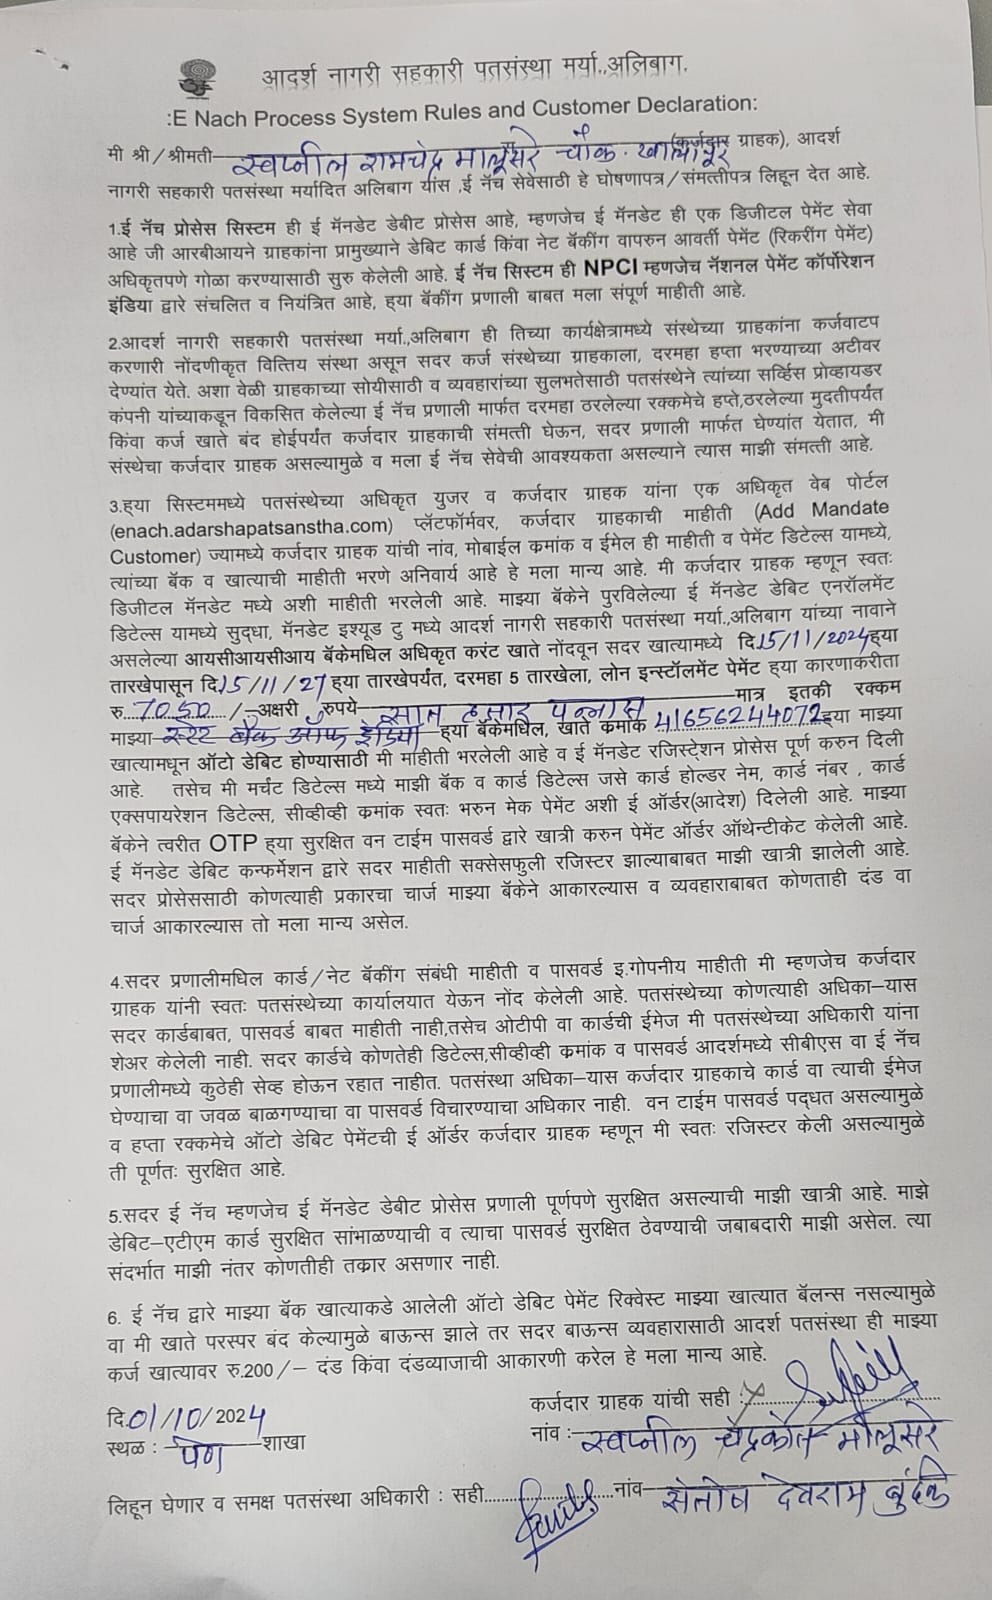 आदर्श नागरी सहकारी पतसंस्था मर्या.,अलिबाग.
:E Nach Process System Rules and Customer Declaration:
मी श्री/श्रीमती स्वप्नील रामचंद्र मालूसरे चौक. खालापूर (कर्जदार ग्राहक), आदर्श
नागरी सहकारी पतसंस्था मर्यादित अलिबाग यांस ,ई नॅच सेवेसाठी हे घोषणापत्र/संमत्तीपत्र लिहून देत आहे.
1.ई नॅच प्रोसेस सिस्टम ही ई मॅनडेट डेबीट प्रोसेस आहे, म्हणजेच ई मॅनडेट ही एक डिजीटल पेमेंट सेवा
आहे जी आरबीआयने ग्राहकांना प्रामुख्याने डेबिट कार्ड किंवा नेट बॅकींग वापरुन आवर्ती पेमेंट (रिकरींग पेमेंट)
अधिकृतपणे गोळा करण्यासाठी सुरु केलेली आहे. ई नॅच सिस्टम ही NPCI म्हणजेच नॅशनल पेमेंट कॉर्पोरेशन
इंडिया द्वारे संचलित व नियंत्रित आहे, ह्या बॅकींग प्रणाली बाबत मला संपूर्ण माहीती आहे.
2.आदर्श नागरी सहकारी पतसंस्था मर्या.,अलिबाग ही तिच्या कार्यक्षेत्रामध्ये संस्थेच्या ग्राहकांना कर्जवाटप
करणारी नोंदणीकृत वित्तिय संस्था असून सदर कर्ज संस्थेच्या ग्राहकाला, दरमहा हप्ता भरण्याच्या अटीवर
देण्यांत येते. अशा वेळी ग्राहकाच्या सोयीसाठी व व्यवहारांच्या सुलभतेसाठी पतसंस्थेने त्यांच्या सर्व्हिस प्रोव्हायडर
कंपनी यांच्याकडून विकसित केलेल्या ई नॅच प्रणाली मार्फत दरमहा ठरलेल्या रक्कमेचे हप्ते,ठरलेल्या मुदतीपर्यंत
किंवा कर्ज खाते बंद होईपर्यंत कर्जदार ग्राहकाची संमत्ती घेऊन, सदर प्रणाली मार्फत घेण्यांत येतात, मी
संस्थेचा कर्जदार ग्राहक असल्यामुळे व मला ई नॅच सेवेची आवश्यकता असल्याने त्यास माझी संमत्ती आहे.
3.ह्या सिस्टममध्ये पतसंस्थेच्या अधिकृत युजर व कर्जदार ग्राहक यांना एक अधिकृत वेब पोर्टल
(enach.adarshapatsanstha.com) प्लॅटफॉर्मवर, कर्जदार ग्राहकाची माहीती (Add Mandate
Customer) ज्यामध्ये कर्जदार ग्राहक यांची नांव, मोबाईल क्रमांक व ईमेल ही माहीती व पेमेंट डिटेल्स यामध्ये,
त्यांच्या बॅक व खात्याची माहीती भरणे अनिवार्य आहे हे मला मान्य आहे. मी कर्जदार ग्राहक म्हणून स्वतः
डिजीटल मॅनडेट मध्ये अशी माहीती भरलेली आहे. माझ्या बॅकेने पुरविलेल्या ई मॅनडेट डेबिट एनरॉलमेंट
डिटेल्स यामध्ये सुद्धा, मॅनडेट इश्यूड टु मध्ये आदर्श नागरी सहकारी पतसंस्था मर्या.,अलिबाग यांच्या नावाने
असलेल्या आयसीआयसीआय बॅकेमधिल अधिकृत करंट खाते नोंदवून सदर खात्यामध्ये दि.15/11/2024 ह्या
तारखेपासून दि.15/11/27 ह्या तारखेपर्यंत, दरमहा 5 तारखेला, लोन इन्स्टॉलमेंट पेमेंट ह्या कारणाकरीता
रु. 7050 /- अक्षरी रुपये सात हजार पन्नास मात्र इतकी रक्कम
माझ्या स्टेट बैंक ऑफ इंडिया ह्या बॅकेमधिल, खाते क्रमांक 41656244072 ह्या माझ्या
खात्यामधून ऑटो डेबिट होण्यासाठी मी माहीती भरलेली आहे व ई मॅनडेट रजिस्ट्रेशन प्रोसेस पूर्ण करुन दिली
आहे. तसेच मी मर्चंट डिटेल्स मध्ये माझी बॅक व कार्ड डिटेल्स जसे कार्ड होल्डर नेम, कार्ड नंबर , कार्ड
एक्सपायरेशन डिटेल्स, सीव्हीव्ही क्रमांक स्वतः भरुन मेक पेमेंट अशी ई ऑर्डर(आदेश) दिलेली आहे. माझ्या
बॅकेने त्वरीत OTP ह्या सुरक्षित वन टाईम पासवर्ड द्वारे खात्री करुन पेमेंट ऑर्डर ऑथेन्टीकेट केलेली आहे.
ई मॅनडेट डेबिट कन्फर्मेशन द्वारे सदर माहीती सक्सेसफुली रजिस्टर झाल्याबाबत माझी खात्री झालेली आहे.
सदर प्रोसेससाठी कोणत्याही प्रकारचा चार्ज माझ्या बॅकेने आकारल्यास व व्यवहाराबाबत कोणताही दंड वा
चार्ज आकारल्यास तो मला मान्य असेल.
4.सदर प्रणालीमधिल कार्ड/नेट बॅकींग संबंधी माहीती व पासवर्ड इ.गोपनीय माहीती मी म्हणजेच कर्जदार
ग्राहक यांनी स्वतः पतसंस्थेच्या कार्यालयात येऊन नोंद केलेली आहे. पतसंस्थेच्या कोणत्याही अधिका–यास
सदर कार्डबाबत, पासवर्ड बाबत माहीती नाही,तसेच ओटीपी वा कार्डची ईमेज मी पतसंस्थेच्या अधिकारी यांना
शेअर केलेली नाही. सदर कार्डचे कोणतेही डिटेल्स,सीव्हीव्ही क्रमांक व पासवर्ड आदर्शमध्ये सीबीएस वा ई नॅच
प्रणालीमध्ये कुठेही सेव्ह होऊन रहात नाहीत. पतसंस्था अधिका–यास कर्जदार ग्राहकाचे कार्ड वा त्याची ईमेज
घेण्याचा वा जवळ बाळगण्याचा वा पासवर्ड विचारण्याचा अधिकार नाही. वन टाईम पासवर्ड पद्धत असल्यामुळे
व हप्ता रक्कमेचे ऑटो डेबिट पेमेंटची ई ऑर्डर कर्जदार ग्राहक म्हणून मी स्वतः रजिस्टर केली असल्यामुळे
ती पूर्णतः सुरक्षित आहे.
5.सदर ई नॅच म्हणजेच ई मॅनडेट डेबीट प्रोसेस प्रणाली पूर्णपणे सुरक्षित असल्याची माझी खात्री आहे. माझे
डेबिट–एटीएम कार्ड सुरक्षित सांभाळण्याची व त्याचा पासवर्ड सुरक्षित ठेवण्याची जबाबदारी माझी असेल. त्या
संदर्भात माझी नंतर कोणतीही तक्रार असणार नाही.
6. ई नॅच द्वारे माझ्या बॅक खात्याकडे आलेली ऑटो डेबिट पेमेंट रिक्वेस्ट माझ्या खात्यात बॅलन्स नसल्यामुळे
वा मी खाते परस्पर बंद केल्यामुळे बाऊन्स झाले तर सदर बाऊन्स व्यवहारासाठी आदर्श पतसंस्था ही माझ्या
कर्ज खात्यावर रु.200/– दंड किंवा दंडव्याजाची आकारणी करेल हे मला मान्य आहे.
कर्जदार ग्राहक यांची सही :
दि.01/10/2024
नांव :- स्वप्नील चंद्रकांत मालूसरे
स्थळ : पेण शाखा
लिहून घेणार व समक्ष पतसंस्था अधिकारी : सही नांव संतोष देवराम